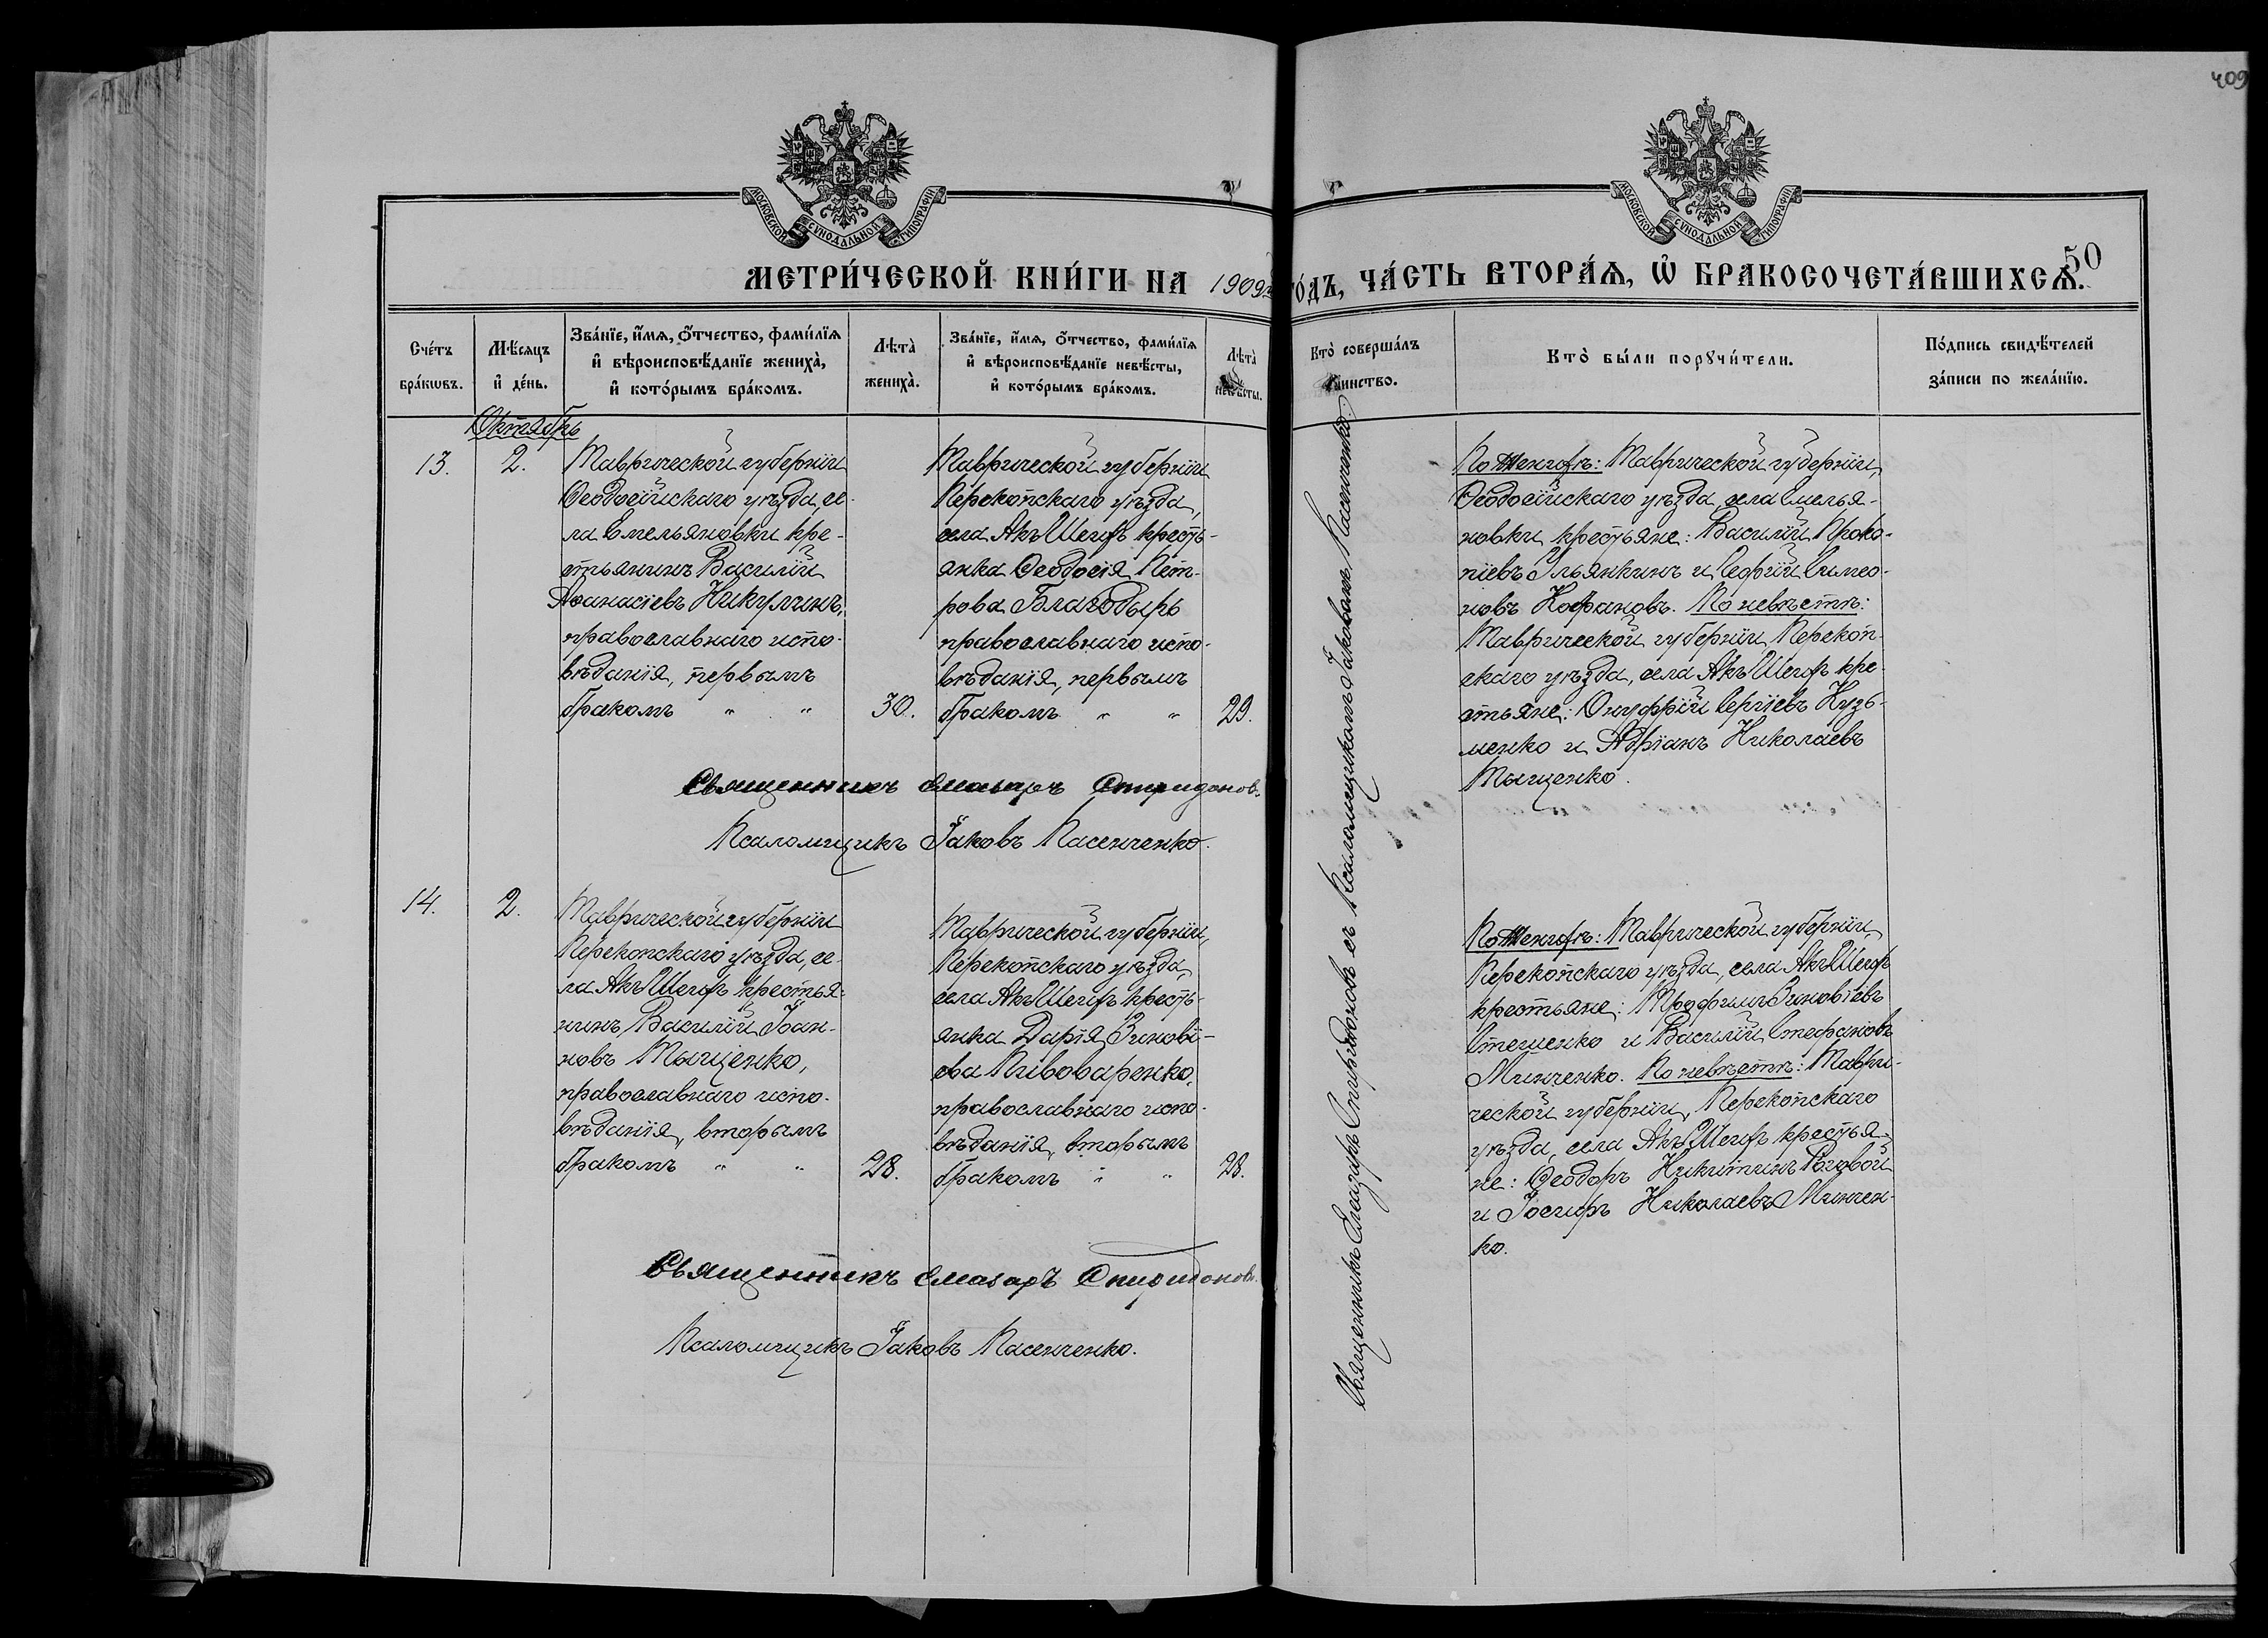 409
МОСКОВСКОЙ СѴНОДАЛЬНОЙ ТИПОГРАФІИ
МОСКОВСКОЙ СѴНОДАЛЬНОЙ ТИПОГРАФІИ
50
МЕТРИ́ЧЕСКОЙ КНИ́ГИ НА 1909й ГО́ДЪ, ЧА́СТЬ ВТОРА́Ѧ, Ѡ҆ БРАКОСОЧЕТА́ВШИХСѦ.
Сче́тъ
бра́кѡвъ.
Мѣ́сяцъ
и҆ де́нь.
Зва́нїе, и҆́мѧ, ѻ҆́тчество, фами́лїѧ
и҆ вѣроисповѣ́данїе жениха̀,
и҆ кото́рымъ бра́комъ.
Лѣта̀
жениха̀.
Зва́нїе, и҆́мѧ, ѻ҆́тчество, фами́лїѧ
и҆ вѣроисповѣ́данїе невѣ́сты,
и҆ кото́рымъ бра́комъ.
Лѣта̀
невѣ́сты.
Кто̀ соверша́лъ
та́инство.
Кто̀ бы́ли порꙋчи́тели.
По́дпись свидѣ́телей
за́писи по жела́нїю.
Октябрь
13.
2.
Таврической губерніи
Ѳеодосійскаго уѣзда, се-
ла Емельяновки кре-
стьянинъ Василій
Аѳанасіевъ Никулинъ,
православнаго испо-
вѣданія, первымъ
бракомъ " "
30.
Таврической губерніи
Перекопскаго уѣзда,
села Акъ Шеихъ кресть-
янка Ѳеодосія Пет-
рова Благодырь
православнаго испо-
вѣданія, первымъ
бракомъ " "
29.
Священникъ Елеазаръ Спиридоновъ съ Псаломщикомъ Іаковомъ Пасенченко.
По женихѣ: Таврической губерніи,
Ѳеодосійскаго уѣзда, села Емелья-
новки крестьяне: Василій Проко-
піевъ Ульянкинъ и Георгій Симео-
новъ Кофановъ. По невѣстѣ:
Таврической губерніи, Перекоп-
скаго уѣзда, села Акъ Шеихъ кре-
стьяне: Онуфрій Сергіевъ Кузь-
менко и Адріанъ Николаевъ
Тыщенко.
Священникъ Елеазаръ Спиридоновъ.
Псаломщикъ Іаковъ Пасенченко.
14.
2.
Таврической губерніи
Перекопскаго уѣзда, се-
ла Акъ Шеихъ крестья-
нинъ Василій Іоан-
новъ Тыщенко,
православнаго испо-
вѣданія, вторымъ
бракомъ " "
28.
Таврической губерніи,
Перекопскаго уѣзда,
села Акъ Шеихъ кресть-
янка Дарія Зиновí-
ева Пивоваренко,
православнаго испо-
вѣданія, вторымъ
бракомъ " "
28.
По женихѣ: Таврической губерніи,
Перекопскаго уѣзда, села Акъ Шеихъ
крестьяне: Трофимъ Зиновіевъ
Стешенко и Василій Стефановъ
Минченко. По невѣстѣ: Таври-
ческой губерніи, Перекопскаго
уѣзда, села Акъ Шеихъ крестья-
не: Ѳеодоръ Никитинъ Роговой
и Іосифъ Николаевъ Минчен-
ко.
Священникъ Елеазаръ Спиридоновъ.
Псаломщикъ Іаковъ Пасенченко.